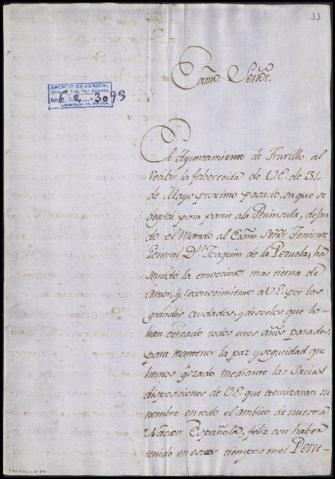 33
Exmo. Señor.
Al Ayuntamiento de Truxillo al
recibir la faborecida de V.E. de 31,
de Mayo proximo pasado, en que se
despide para partir a la Peninsula, dejan-
do el Mando al Exmo Señor Teniente
General Dn. Joaquin de la Pezuela, ha
tenido la emocion mas tierna de
amor, y reconocimiento a V.E. por los
grandes cuidados, y desvelos que lo
han cercado todos estos años pasados,
para mantener la paz y seguridad que
hemos gozado mediante las Savias
disposiciones de V.E. que eternizaran su
nombre en todo el ambito de nuestra
Nacion Española, feliz con haber
tenido en estos tiempos en el Peru